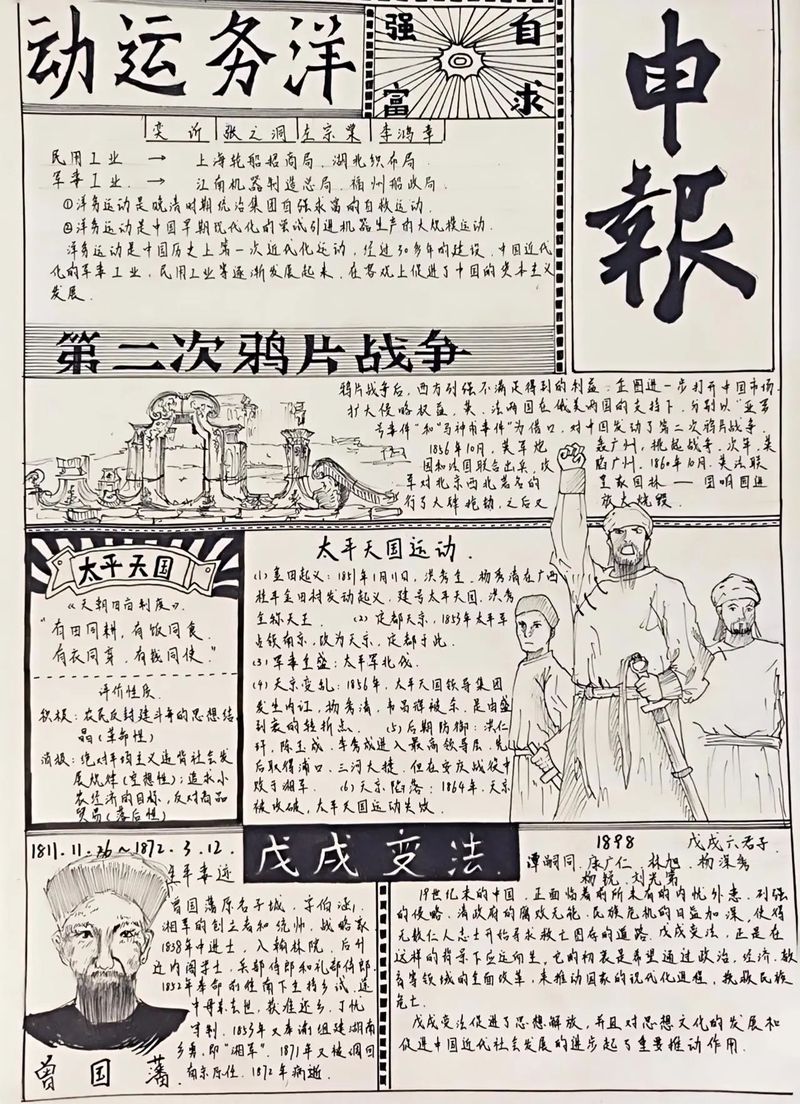 洋务运动
自强
求富
申報
奕䜣 张之洞 左宗棠 李鸿章
民用工业 → 上海轮船招商局、湖北织布局.
军事工业. → 江南机器制造总局、福州船政局.
①洋务运动是晚清时期统治集团自强求富的自救运动.
②洋务运动是中国早期现代化的尝试引进机器生产的大规模运动.
洋务运动是中国历史上第一次近代化运动,经过30多年的建设,中国近代
化的军事工业,民用工业等逐渐发展起来,在客观上促进了中国的资本主义
发展.
第二次鸦片战争
鸦片战争后,西方列强不满足得到的利益,企图进一步打开中国市场.
扩大侵略权益,英、法两国在俄美两国的支持下,分别以“亚罗
号事件”和“马神甫事件”为借口,对中国发动了第二次鸦片战争.
1856年10月,英军炮轰广州,挑起战争.次年,英
国和法国联合出兵,攻陷广州,1860年10月.英法联
军对北京西北著名的皇家园林——圆明园进
行了大肆抢劫,之后又放火烧毁.
太平天国
《天朝田亩制度》.
“有田同耕,有饭同食.
有衣同穿,有钱同使.”
评价性质.
积极:农民反封建斗争的思想结
晶(革命性)
消极:绝对平均主义违背社会发
展规律(空想性);追求小
农经济的目标,反对商品
贸易(落后性)
太平天国运动.
(1)金田起义:1851年1月11日,洪秀全、杨秀清在广西
桂平金田村发动起义,建号太平天国,洪秀
全称天王. (2)定都天京,1853年太平军
占领南京,改为天京,定都于此.
(3)军事全盛:太平军北伐.
(4)天京变乱:1856年,太平天国领导集团
发生内讧,杨秀清,韦昌辉被杀,是由盛
到衰的转折点. (5)后期防御:洪仁
玕,陈玉成,李秀成进入最高领导层,先
后取得浦口、三河大捷,但在安庆战役中
败于湘军. (6)天京陷落:1864年,天京
被攻破,太平天国运动失败.
1811.11.26~1872.3.12.
生平事迹
曾国藩原名子城,字伯涵,
湘军的创立者和统帅,战略家.
1838年中进士,入翰林院,后升
迁内阁学士,兵部侍郎和礼部侍郎.
1852年奉命
主持乡试,途
中母亲去世,获准还乡,丁忧
守制.1853年又奉谕组建湖南
乡勇,即“湘军”.1871年又被调回
南京原任.1872年病逝.
曾国藩
戊戌变法.
1898 戊戌六君子.
谭嗣同、康广仁、林旭、杨深秀
杨锐、刘光第
19世纪末的中国,正面临着前所未有的内忧外患,列强
的侵略,清政府的腐败无能,民族危机的日益加深,使得
无数仁人志士开始寻求救亡图存的道路.戊戌变法,正是在
这样的背景下应运而生,它的初衷是希望通过政治,经济,教
育等领域的全面改革,来推动国家的现代化进程,挽救民族
危亡.
戊戌变法促进了思想解放,并且对思想文化的发展和
促进中国近代社会发展的进步起了重要推动作用.